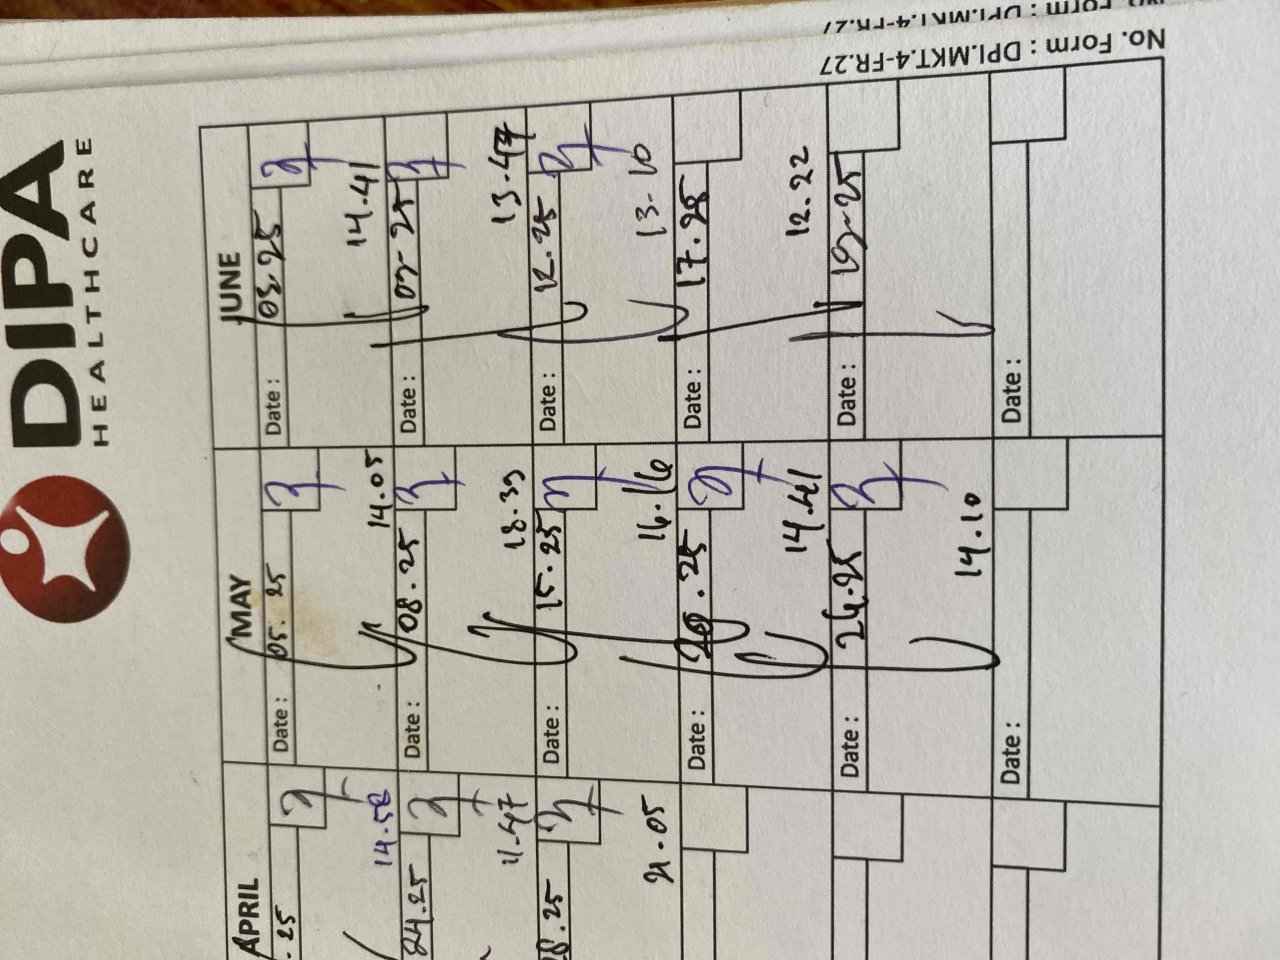 No. Form : DPI.MKT.4-FR.27
No. Form : DPI.MKT.4-FR.27
DIPA
HEALTHCARE
APRIL
.25
14.58
24.25
11.47
.25
21.05
MAY
Date : 05. 25
14.05
Date : 08.25
18.39
Date : 15.25
16.16
Date : 20.25
14.41
Date : 24.25
14.10
Date :
JUNE
Date : 03.25
14.41
Date : 07-25
13.47
Date : 12.25
13-10
Date : 17.25
12.22
Date : 19-25
Date :